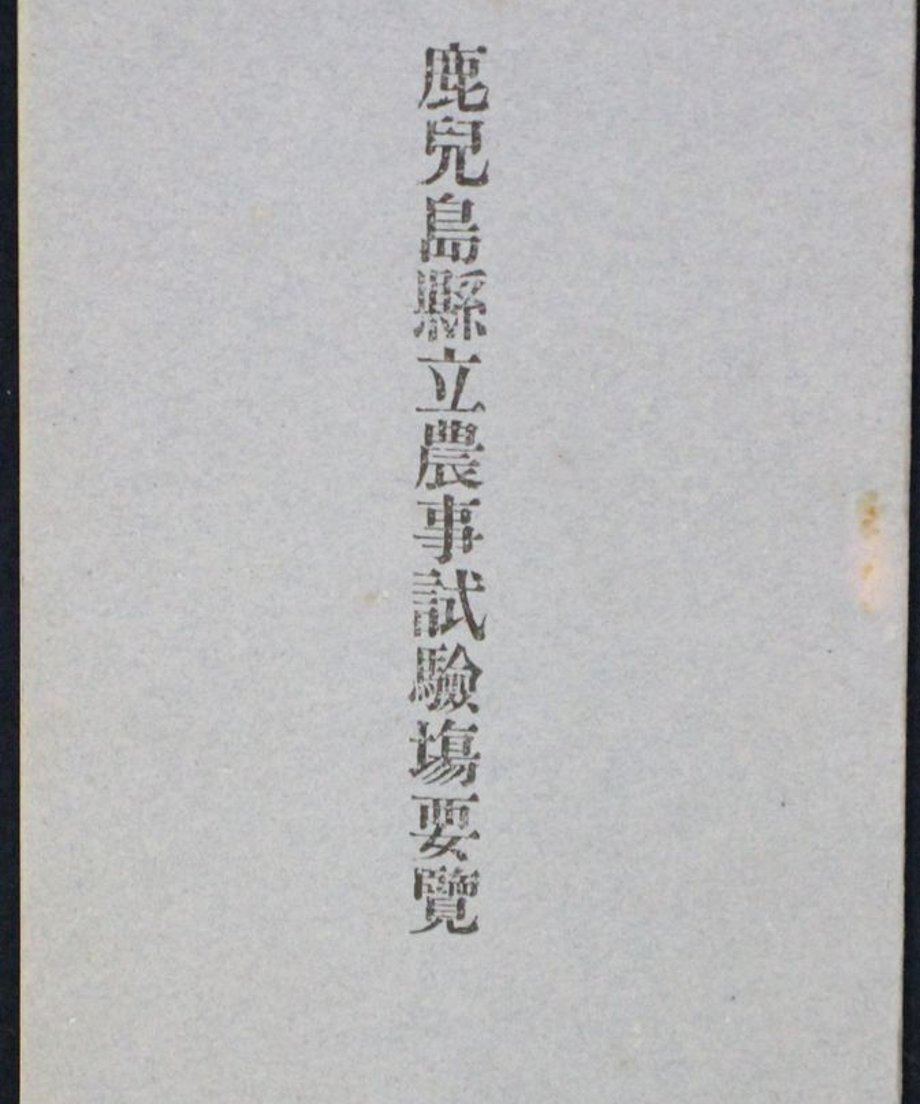 鹿兒島縣立農事試驗塲要覽